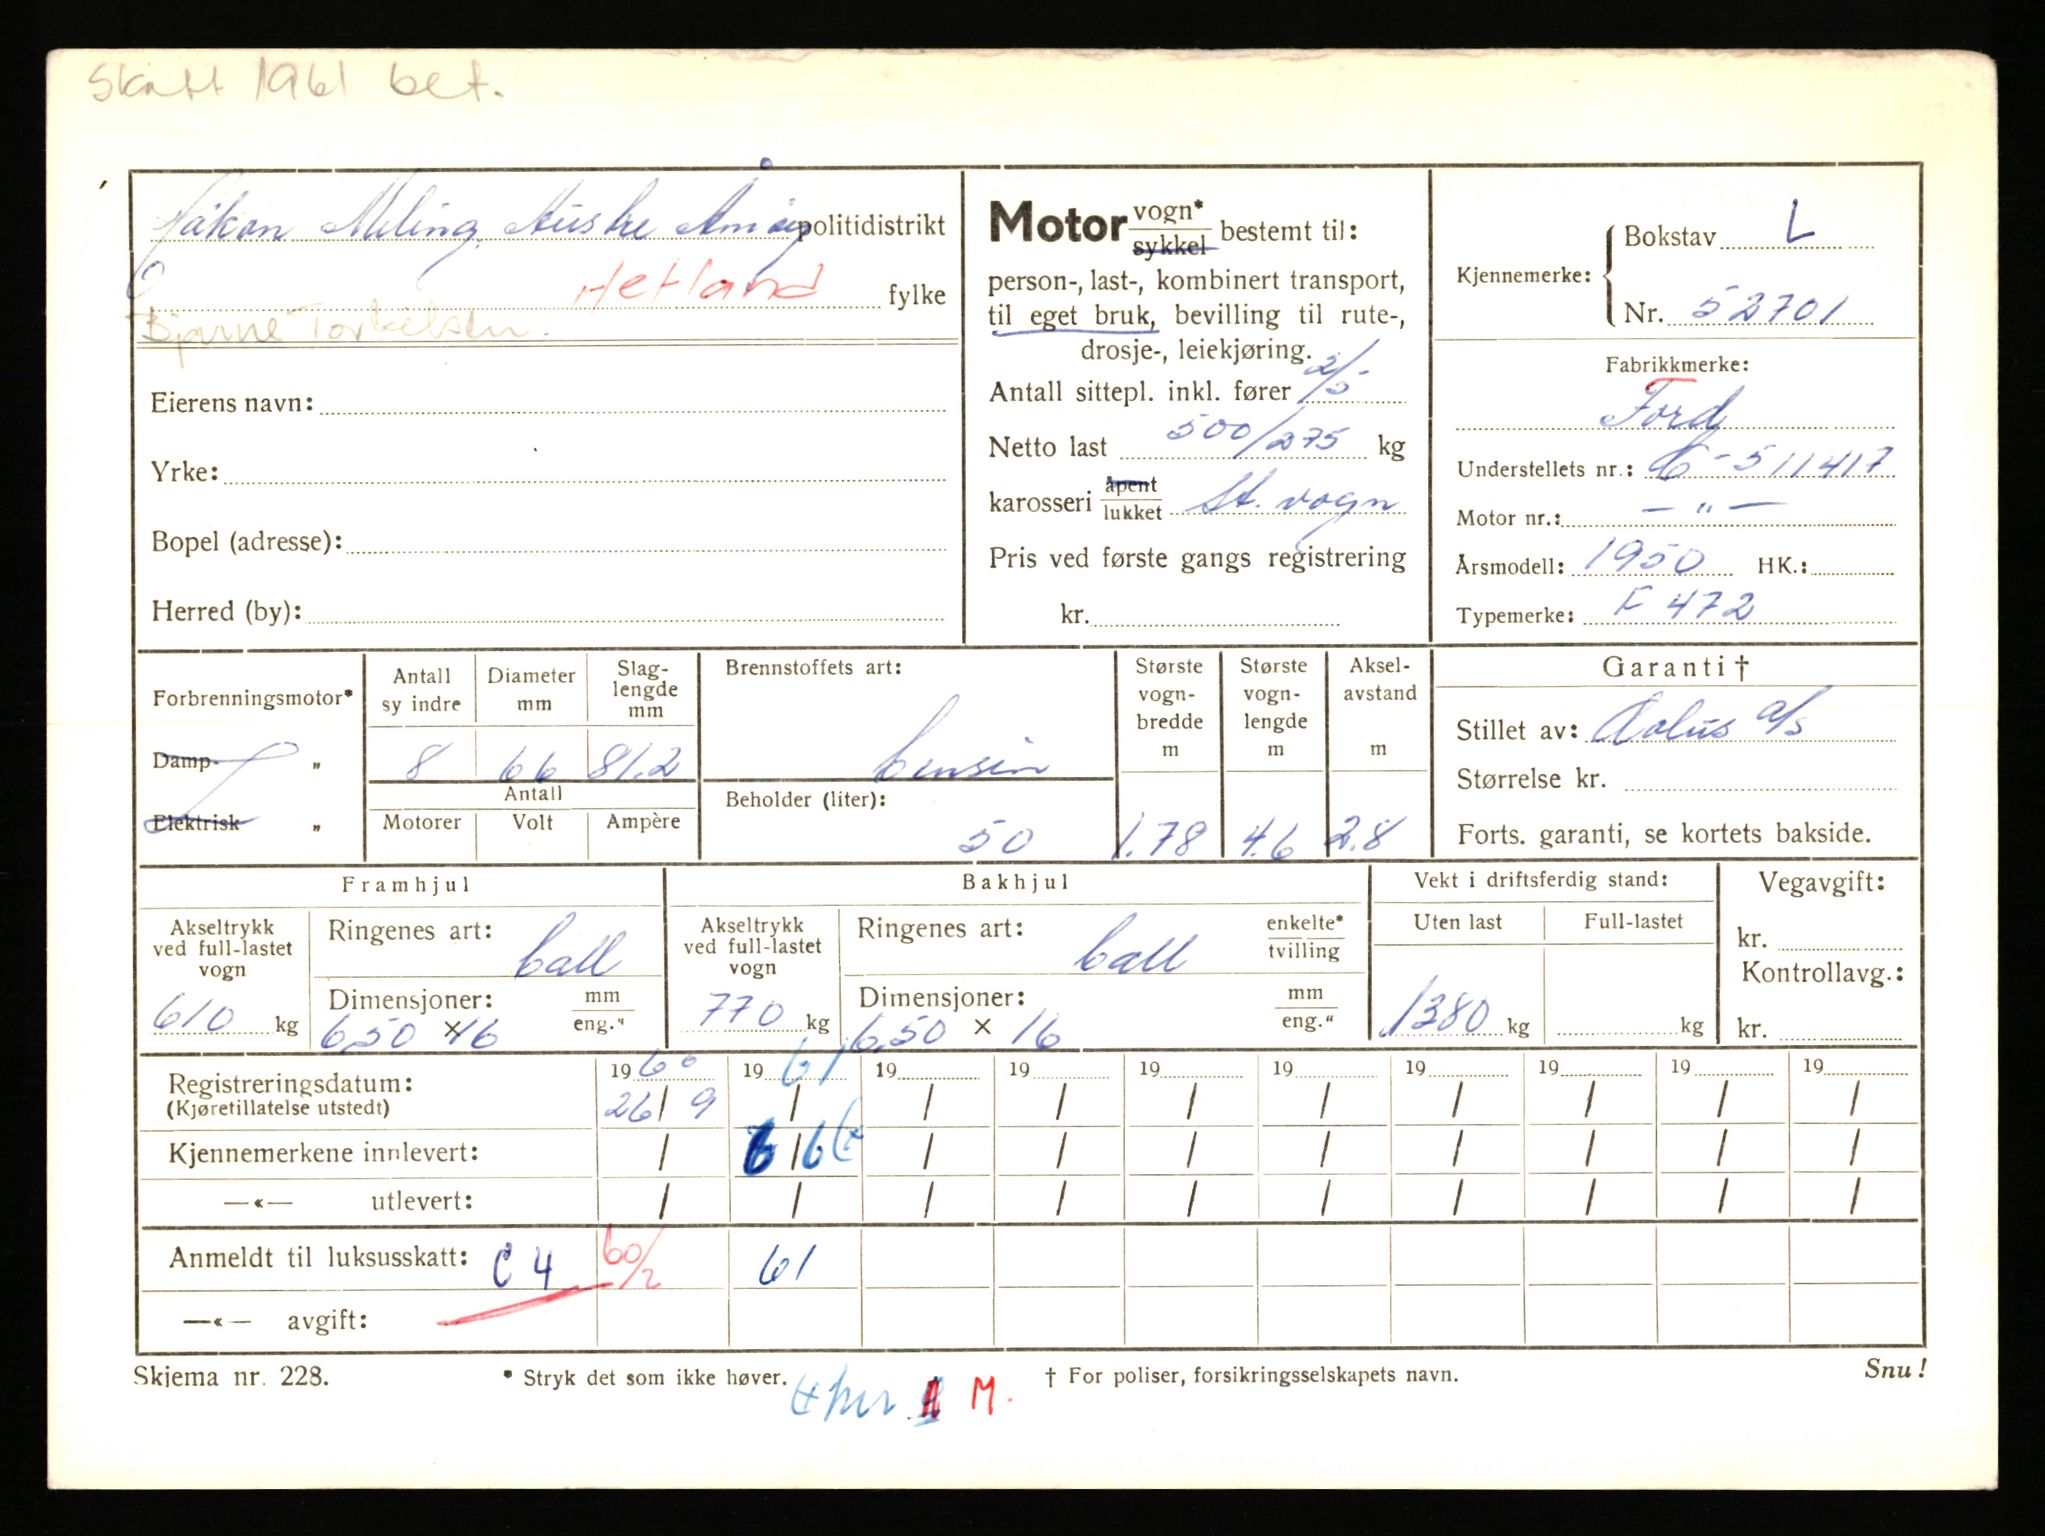 Skatt 1961 bet.
Håkon Meling, Austre Åmøy politidistrikt
Hetland fylke
Bjarne Torkelsen.
Eierens navn:
Yrke:
Bopel (adresse):
Herred (by):
Motor vogn* sykkel bestemt til:
person-, last-, kombinert transport,
til eget bruk, bevilling til rute-,
drosje-, leiekjøring.
Antall sittepl. inkl. fører 2/5
Netto last 500/275 kg
karosseri åpent lukket St. vogn
Pris ved første gangs registrering
kr.
Kjennemerke: Bokstav L
Nr. 52701
Fabrikkmerke:
Ford
Understellets nr.: C-511417
Motor nr.: — " —
Årsmodell: 1950 HK.:
Typemerke: F 472
Forbrenningsmotor*
Damp- „
Elektrisk „
Antall sy indre
Diameter mm
Slag-lengde mm
8 66 81.2
Antall
Motorer Volt Ampère
Brennstoffets art:
bensin
Beholder (liter):
50
Største vogn-bredde m
1.78
Største vogn-lengde m
4.6
Aksel-avstand m
2.8
Garanti †
Stillet av: Æolus a/s
Størrelse kr.
Forts. garanti, se kortets bakside.
Framhjul
Akseltrykk ved full-lastet vogn
610 kg
Ringenes art: ball
Dimensjoner: mm eng."
6,50 x 16
Bakhjul
Akseltrykk ved full-lastet vogn
770 kg
Ringenes art: ball enkelte* tvilling
Dimensjoner: mm eng."
6,50 x 16
Vekt i driftsferdig stand:
Uten last Full-lastet
1380 kg kg
Vegavgift:
kr.
Kontrollavg.:
kr.
Registreringsdatum: 1960 1961 19 19 19 19 19 19 19 19
(Kjøretillatelse utstedt) 26/9 / / / / / / / / /
Kjennemerkene innlevert: / 6/6 / / / / / / / /
—«— utlevert: / / / / / / / / / /
Anmeldt til luksusskatt: C 4 60/2 61
—«— avgift:
Skjema nr. 228.
* Stryk det som ikke høver.
† For poliser, forsikringsselskapets navn.
Snu!
M.